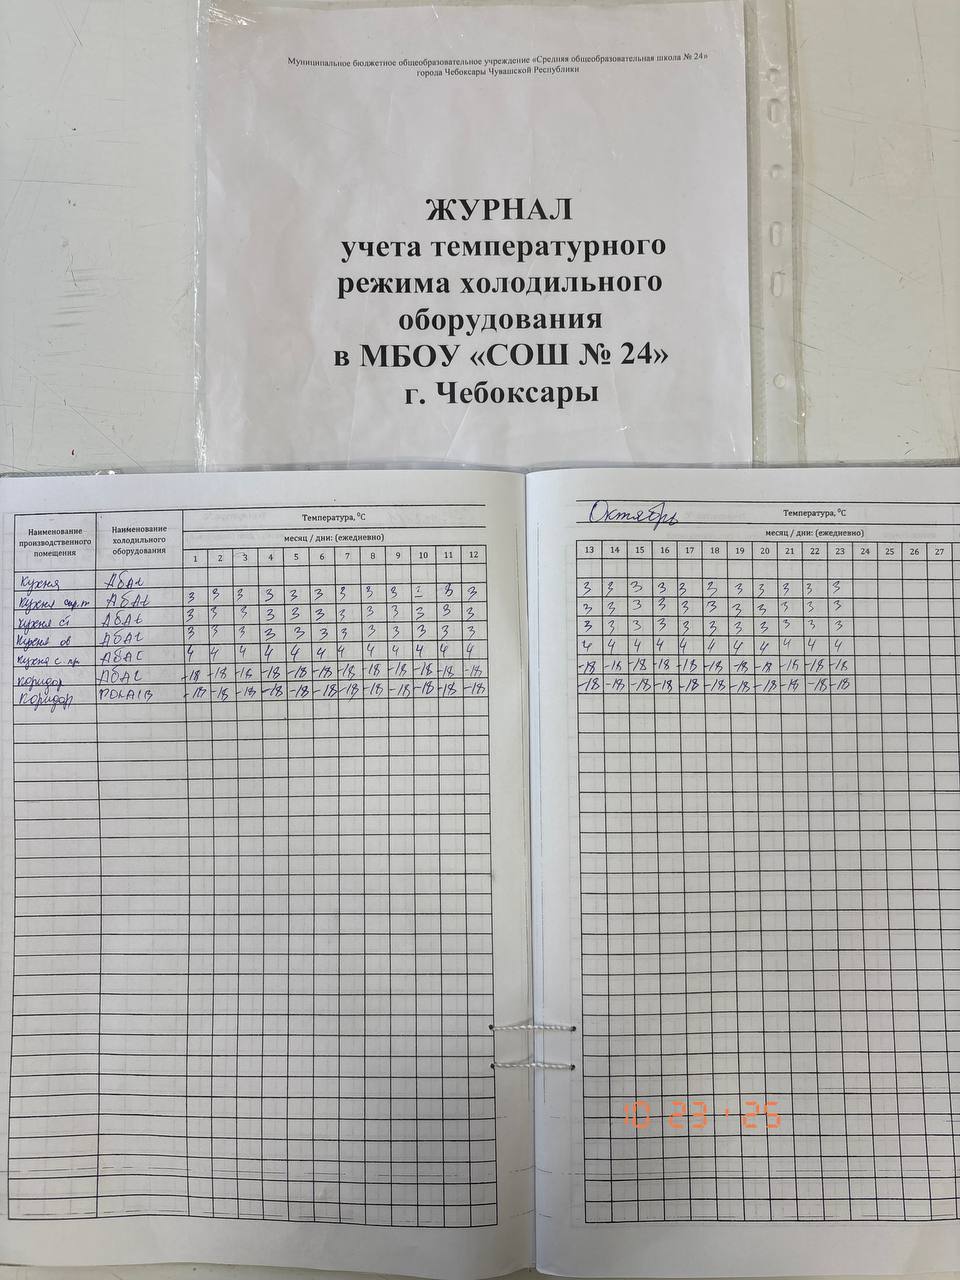 Муниципальное бюджетное общеобразовательное учреждение «Средняя общеобразовательная школа № 24»
города Чебоксары Чувашской Республики
ЖУРНАЛ
учета температурного
режима холодильного
оборудования
в МБОУ «СОШ № 24»
г. Чебоксары
Наименование производственного помещения
Наименование холодильного оборудования
Температура, ⁰С
месяц / дни: (ежедневно)
1 2 3 4 5 6 7 8 9 10 11 12
Кухня АБАТ
Кухня АБАТ 3 3 3 3 3 3 3 3 3 3 3
Кухня АБАТ 3 3 3 3 3 3 3 3 3 3 3 3
Кухня АБАТ 3 3 3 3 3 3 3 3 3 3 3 3
Кухня АБАТ 4 4 4 4 4 4 4 4 4 4 4 4
Коридор АБАТ -18 -18 -18 -18 -18 -18 -18 -18 -18 -18 -18 -18
Коридор POLAIR -18 -18 -18 -18 -18 -18 -18 -18 -18 -18 -18 -18
Октябрь Температура, ⁰С
месяц / дни: (ежедневно)
13 14 15 16 17 18 19 20 21 22 23 24 25 26 27
3 3 3 3 3 3 3 3 3 3 3
3 3 3 3 3 3 3 3 3 3 3
3 3 3 3 3 3 3 3 3 3 3
4 4 4 4 4 4 4 4 4 4 4
-18 -18 -18 -18 -18 -18 -18 -18 -18 -18 -18
-18 -18 -18 -18 -18 -18 -18 -18 -18 -18 -18
10 23 ' 25